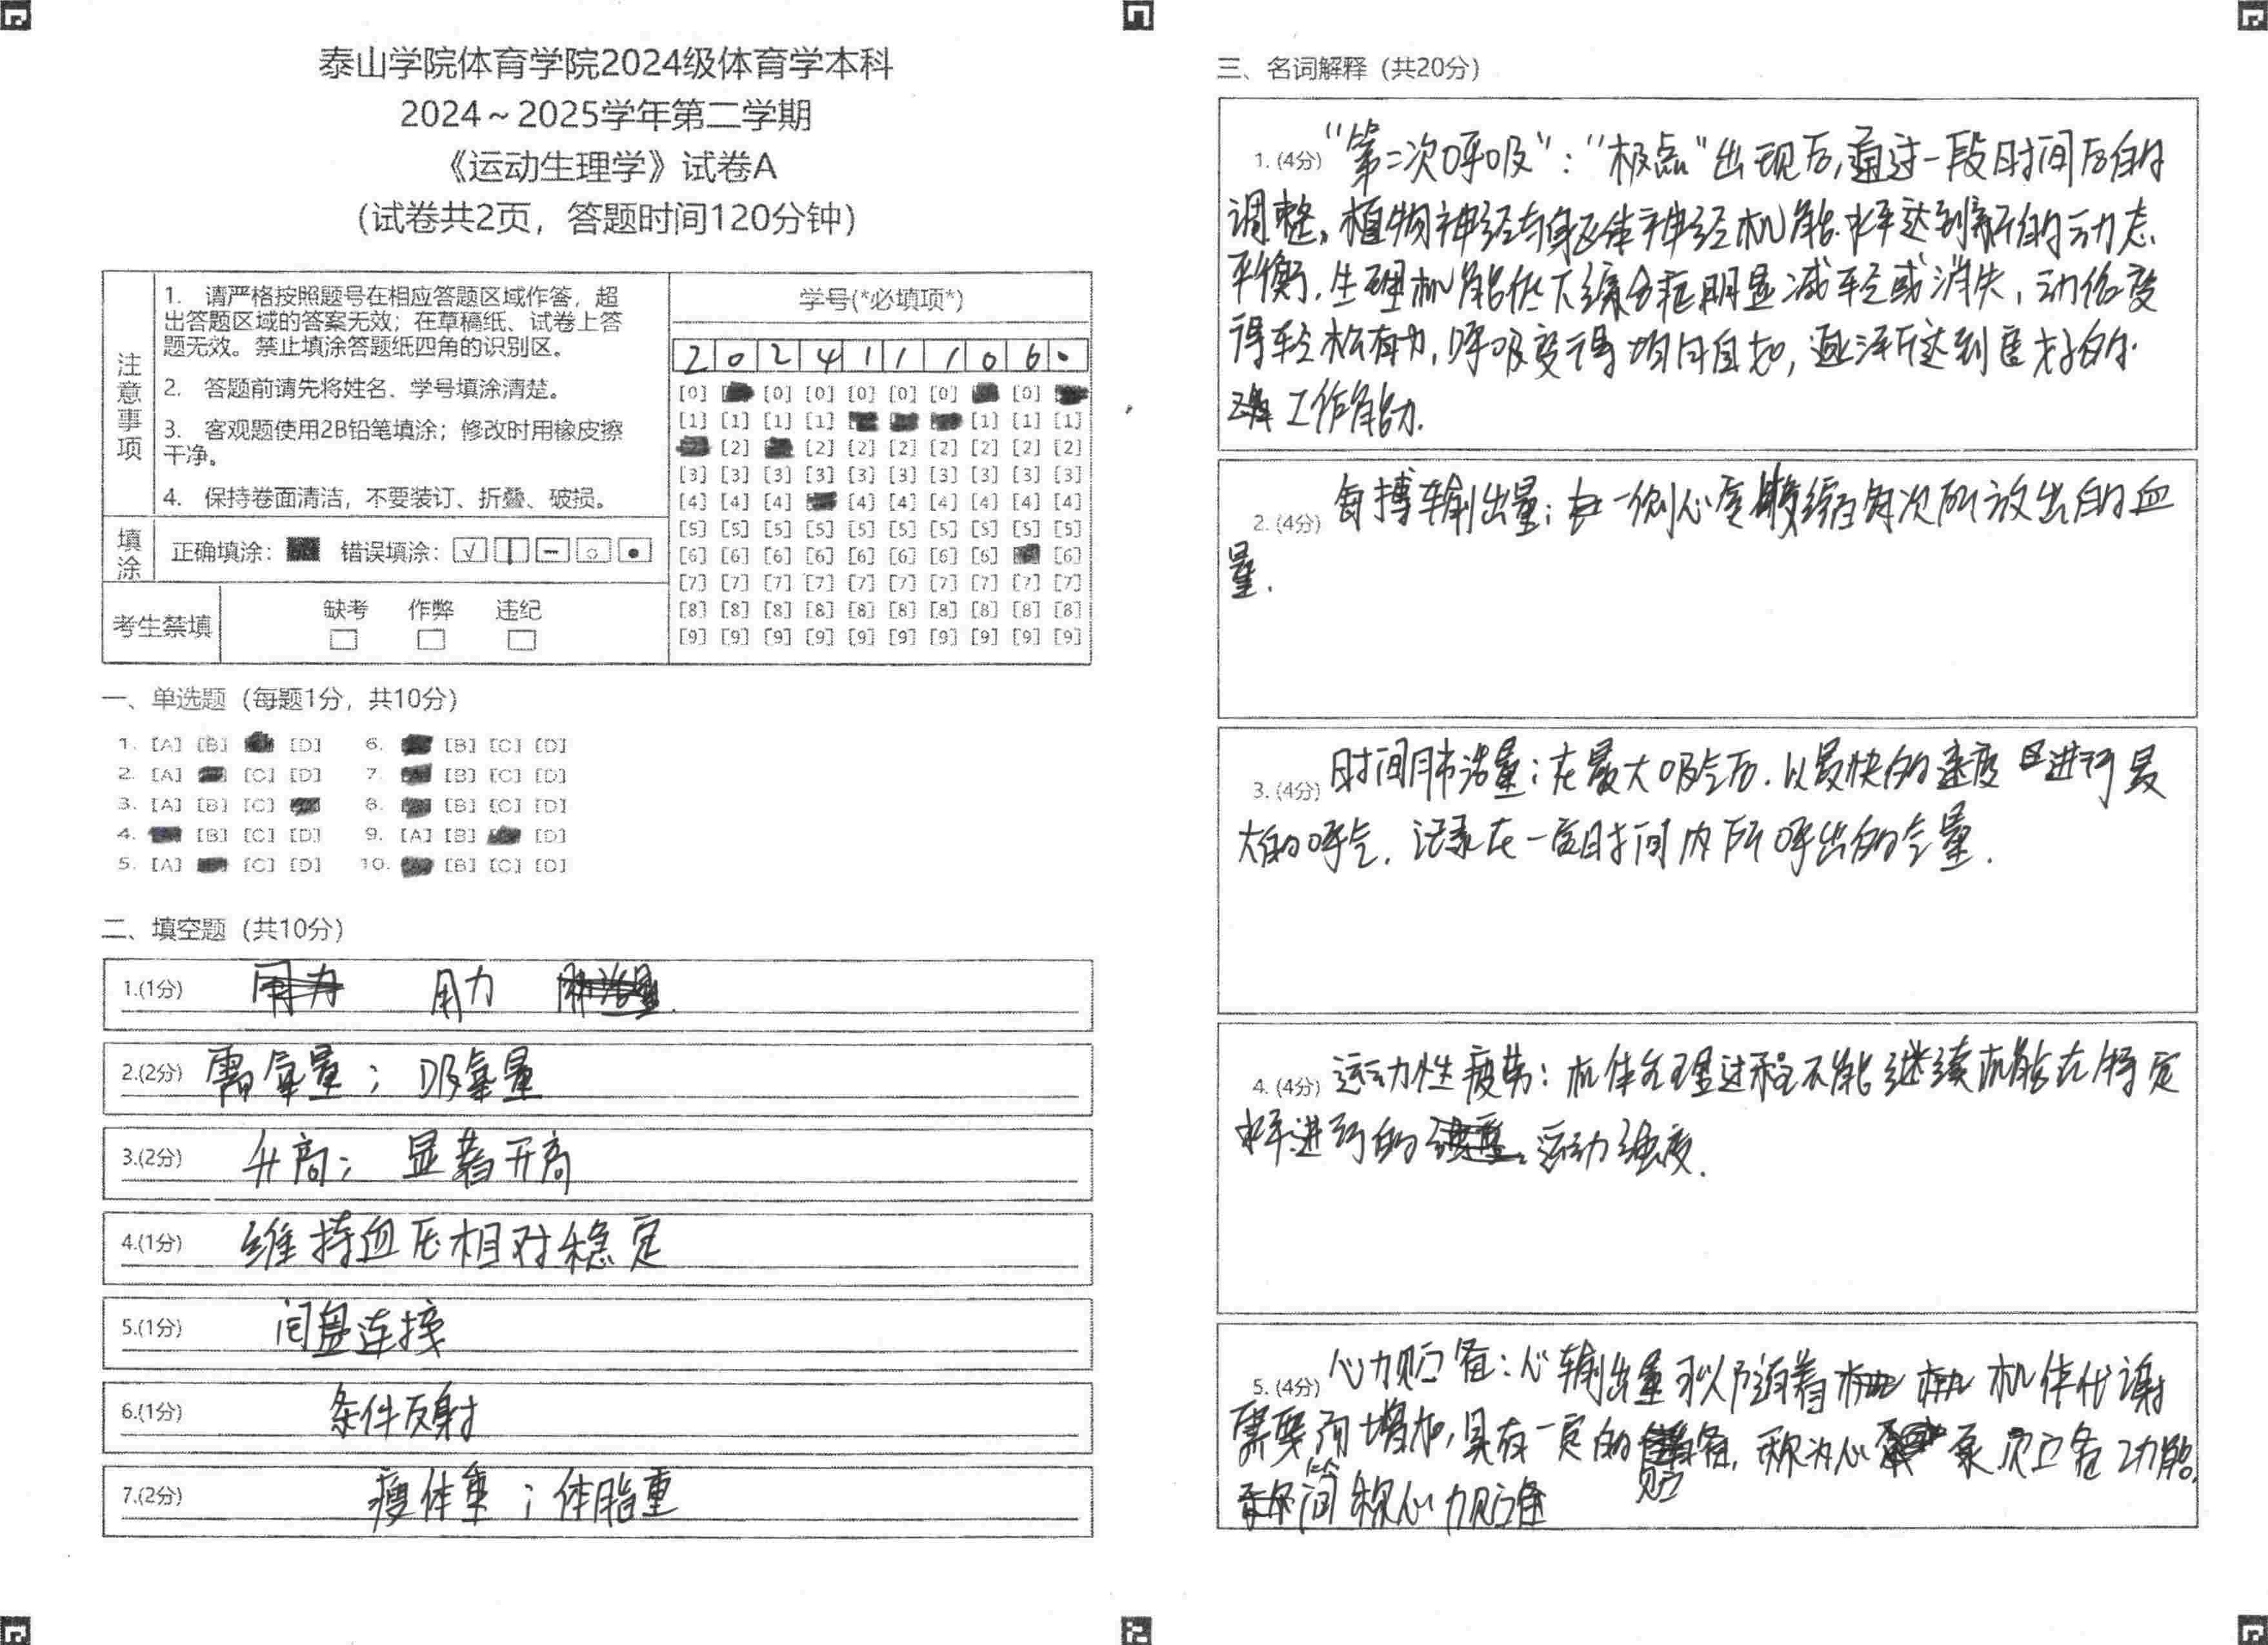 泰山学院体育学院2024级体育学本科
2024～2025学年第二学期
《运动生理学》试卷A
(试卷共2页，答题时间120分钟)
注意事项
1. 请严格按照题号在相应答题区域作答，超
出答题区域的答案无效；在草稿纸、试卷上答
题无效。禁止填涂答题纸四角的识别区。
2. 答题前请先将姓名、学号填涂清楚。
3. 客观题使用2B铅笔填涂；修改时用橡皮擦
干净。
4. 保持卷面清洁，不要装订、折叠、破损。
填涂
正确填涂： 错误填涂：
考生禁填
缺考 作弊 违纪
学号(*必填项*)
2 0 2 4 1 1 1 0 6
[0] [0] [0] [0] [0] [0] [0]
[1] [1] [1] [1] [1] [1] [1]
[2] [2] [2] [2] [2] [2] [2] [2]
[3] [3] [3] [3] [3] [3] [3] [3] [3] [3]
[4] [4] [4] [4] [4] [4] [4] [4] [4]
[5] [5] [5] [5] [5] [5] [5] [5] [5] [5]
[6] [6] [6] [6] [6] [6] [6] [6] [6]
[7] [7] [7] [7] [7] [7] [7] [7] [7] [7]
[8] [8] [8] [8] [8] [8] [8] [8] [8] [8]
[9] [9] [9] [9] [9] [9] [9] [9] [9] [9]
一、单选题（每题1分，共10分）
1. [A] [B] [D] 6. [B] [C] [D]
2. [A] [C] [D] 7. [B] [C] [D]
3. [A] [B] [C] 8. [B] [C] [D]
4. [B] [C] [D] 9. [A] [B] [D]
5. [A] [C] [D] 10. [B] [C] [D]
二、填空题（共10分）
1.(1分) 用力
2.(2分) 需氧量；吸氧量
3.(2分) 升高；显著升高
4.(1分) 维持血压相对稳定
5.(1分) 闰盘连接
6.(1分) 条件反射
7.(2分) 瘦体重；体脂重
三、名词解释（共20分）
1. (4分) “第二次呼吸”：“极点”出现后，通过一段时间后的
调整，植物神经与躯体神经机能水平达到新的动态
平衡，生理机能低下综合症明显减轻或消失，动作变
得轻松有力，呼吸变得均匀自如，逐渐达到良好的
工作能力.
2. (4分) 每搏输出量：一侧心室每次所放出的血
量.
3. (4分) 时间肺活量：在最大吸气后，以最快的速度进行最
大的呼气，记录在一定时间内所呼出的气量.
4. (4分) 运动性疲劳：机体生理过程不能继续机能在特定
水平进行的运动强度.
5. (4分) 心力贮备：心输出量可以随着机体代谢
需要而增加，具有一定的贮备，称为心泵贮备功能。
简称心力贮备